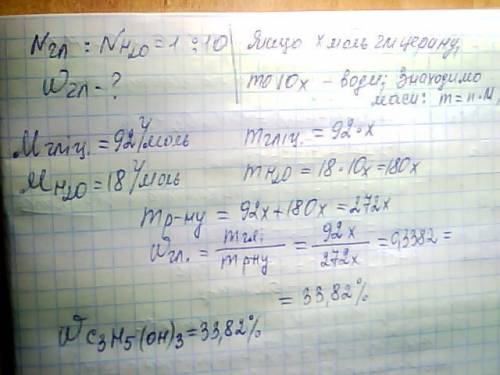 Nгл : NH2O = 1 : 10 | Якщо x моль гліцерину,
Wгл - ? | то 10x - води; Знаходимо
маси: m = n·M.
Mгліц. = 92 г/моль mгліц. = 92·x
MH2O = 18 г/моль mH2O = 18·10x = 180x
mр-ну = 92x + 180x = 272x
Wгл. = mгл. / mр-ну = 92x / 272x = 0,3382 =
= 33,82%
WC3H5(OH)3 = 33,82%